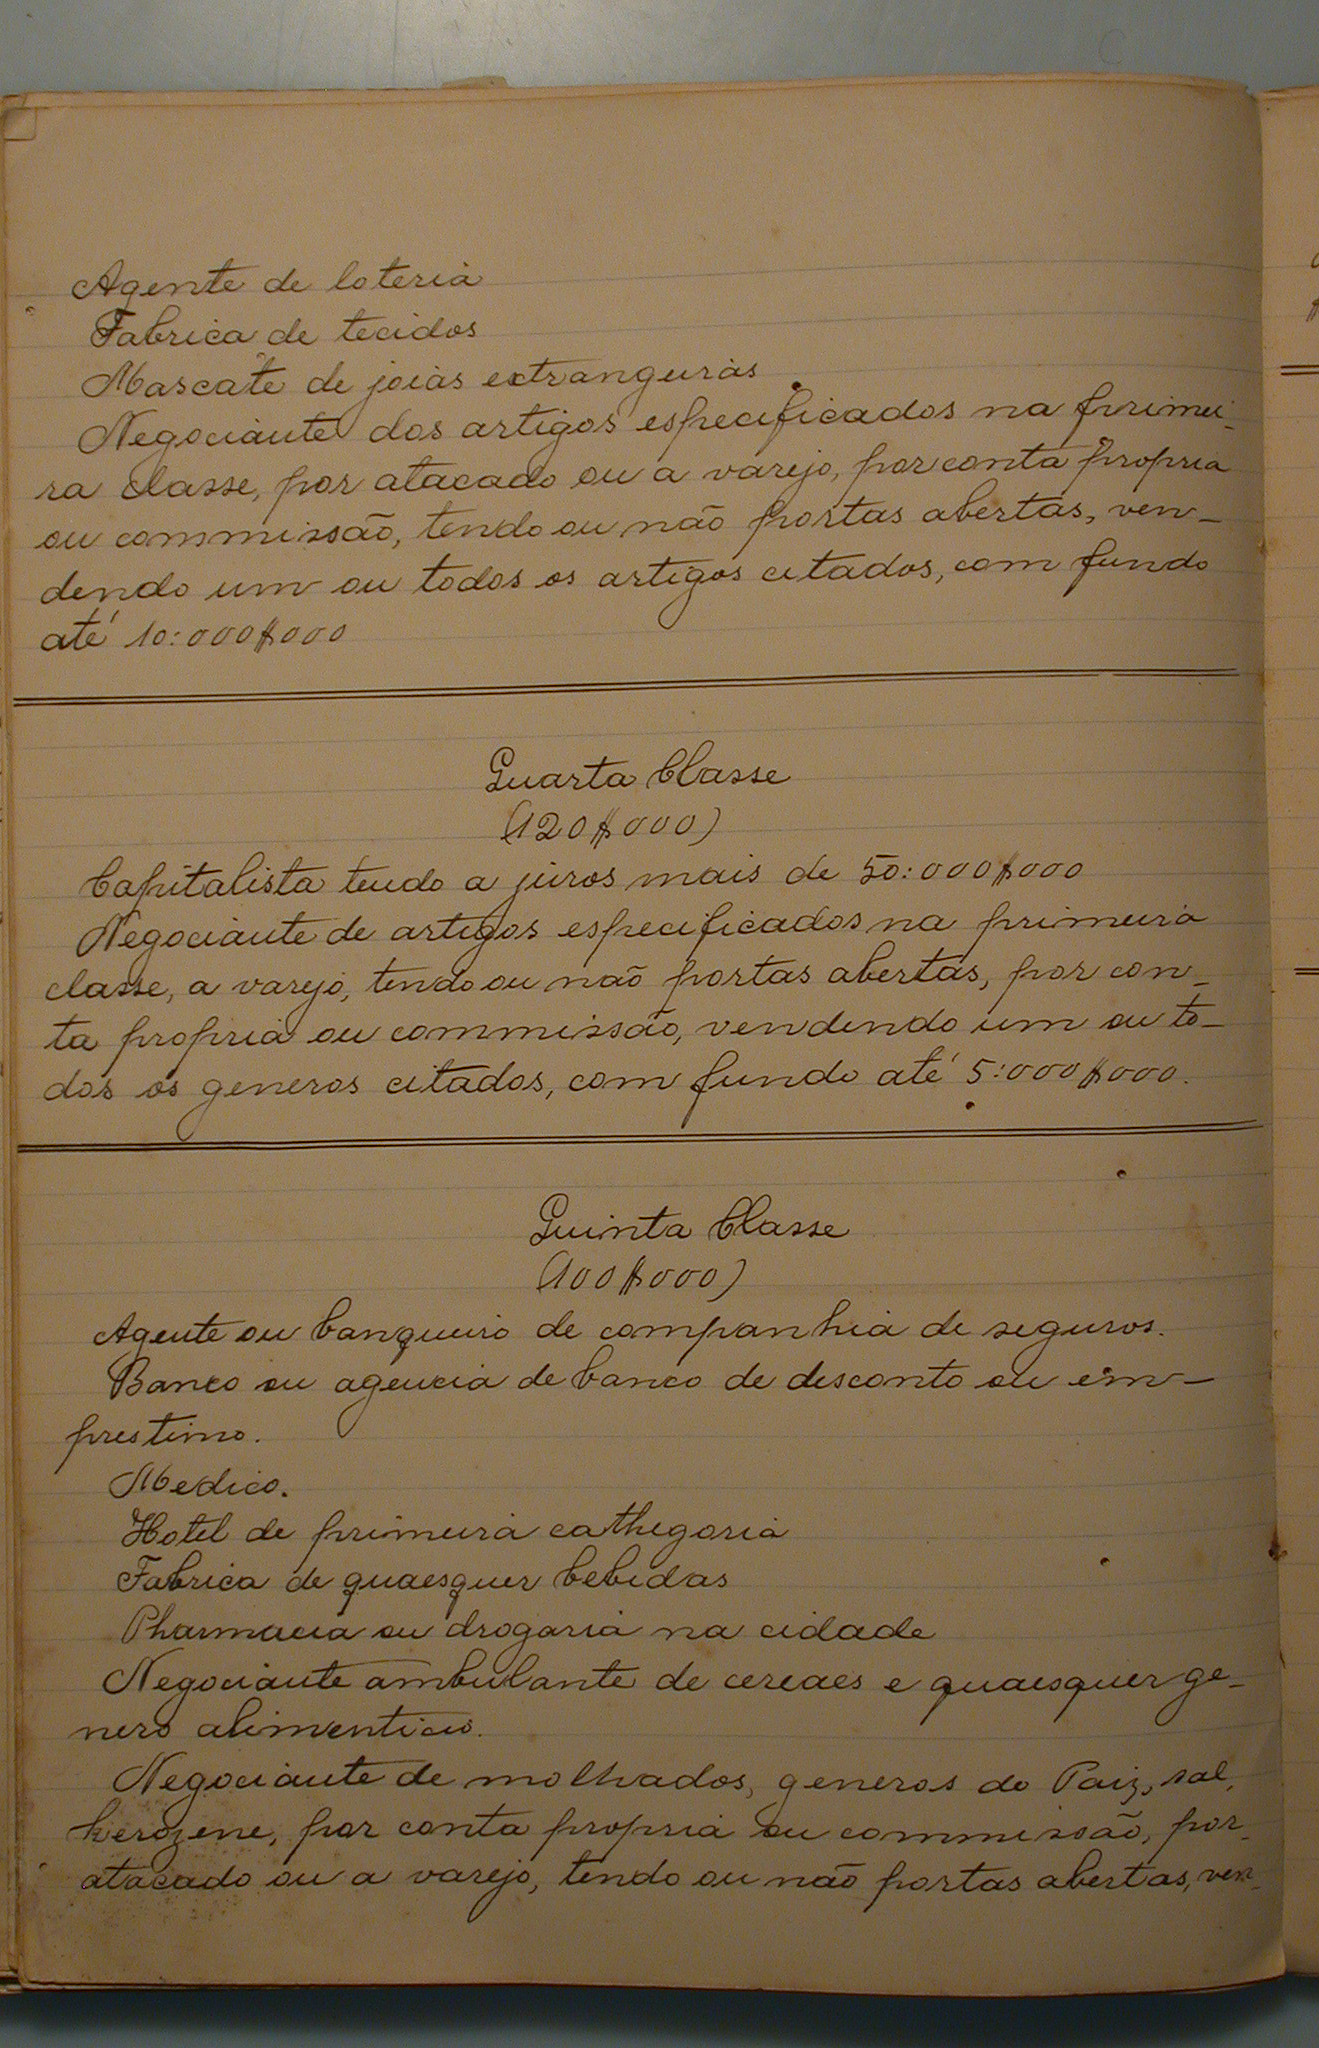 Agente de loteria
Fabrica de tecidos
Mascate de joias extrangeiras
Negociante dos artigos especificados na primei-
ra classe, por atacado ou a varejo, por conta propria
ou commissão, tendo ou não portas abertas, ven-
dendo um ou todos os artigos citados, com fundo
até 10:000$000
Quarta Classe
(120$000)
Capitalista tendo a juros mais de 50:000$000
Negociante de artigos especificados na primeira
classe, a varejo, tendo ou não portas abertas, por con-
ta propria ou commissão, vendendo um ou to-
dos os generos citados, com fundo até 5:000$000.
Quinta Classe
(100$000)
Agente ou banqueiro de companhia de seguros.
Banco ou agencia de banco de desconto ou em-
prestimo.
Medico.
Hotel de primeira cathegoria
Fabrica de quaesquer bebidas
Pharmacia ou drogaria na cidade
Negociante ambulante de cereaes e quaesquer ge-
nero alimenticio.
Negociante de molhados, generos do Paiz, sal,
kerozene, por conta propria ou commissão, por
atacado ou a varejo, tendo ou não portas abertas, ven-